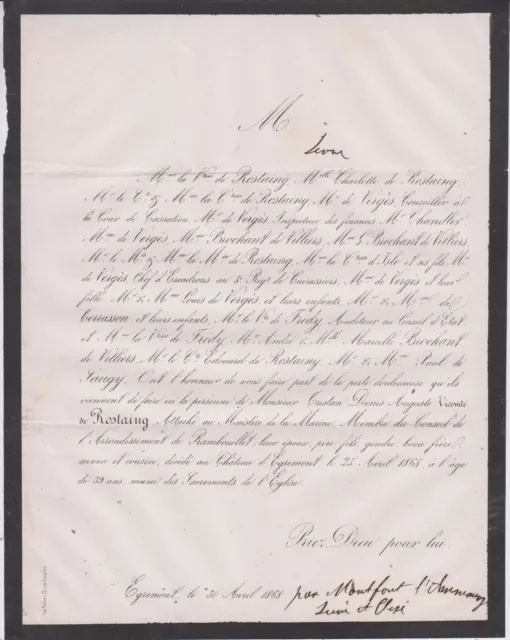 M
M.me la V.tesse de Rostaing, M.elle Charlotte de Rostaing,
M.r le C.te & M.me la C.tesse de Rostaing, M.r de Vergès Conseiller à
la Cour de Cassation, M.r de Vergès Inspecteur des finances, M.r Chandler
M.me de Vergès, M.me Brochant de Villiers, M.me G. Brochant de Villiers,
M.r le M.is & M.me la M.ise de Rostaing, M.me la C.tesse d'Isle et ses fils, M.r
de Vergès, Chef d'Escadrons au 5e Rég.t de Cuirassiers, M.me de Vergès et leur
fille, M.r & M.me Louis de Vergès, et leurs enfants, M.r & M.me de
Terrasson, et leurs enfants, M.r le V.te de Fredy Auditeur au Conseil d'Etat
et M.me la V.tesse de Fredy, M.r André & M.elle Marcelle Brochant
de Villiers, M.r le C.te Edouard de Rostaing, M.r & M.me Paul de
Ont l'honneur de vous faire part de la perte douloureuse qu'ils
viennent de faire en la personne de Monsieur Tristan Denis Auguste Vicomte
de Rostaing Attaché au Ministère de la Marine, Membre du Conseil de
l'Arrondissement de Rambouillet, leur époux, père, fils, gendre, beau frère,
neveu et cousin, décédé au Château d'Egremont, le 25 Avril 1868 à l'âge
de 39 ans, muni des Sacrements de l'Eglise.
Priez Dieu pour lui.
Egremont, le 30 Avril 1868. par Montfort l'Amaury
Seine et Oise